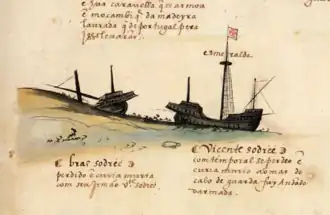 e hũa caravella q̃ se armou
ẽ moçambiq̃ da madeyra
laurada q̃ de portugal pera
isso levarão
esmeralda
bras sodree
perdido ẽ curia muria
com seu jrmão vte sodre
Viçente sodree
com temporal se perdeo ẽ
curia muria no mar do
cabo de guardafuy Andãdo
darmada